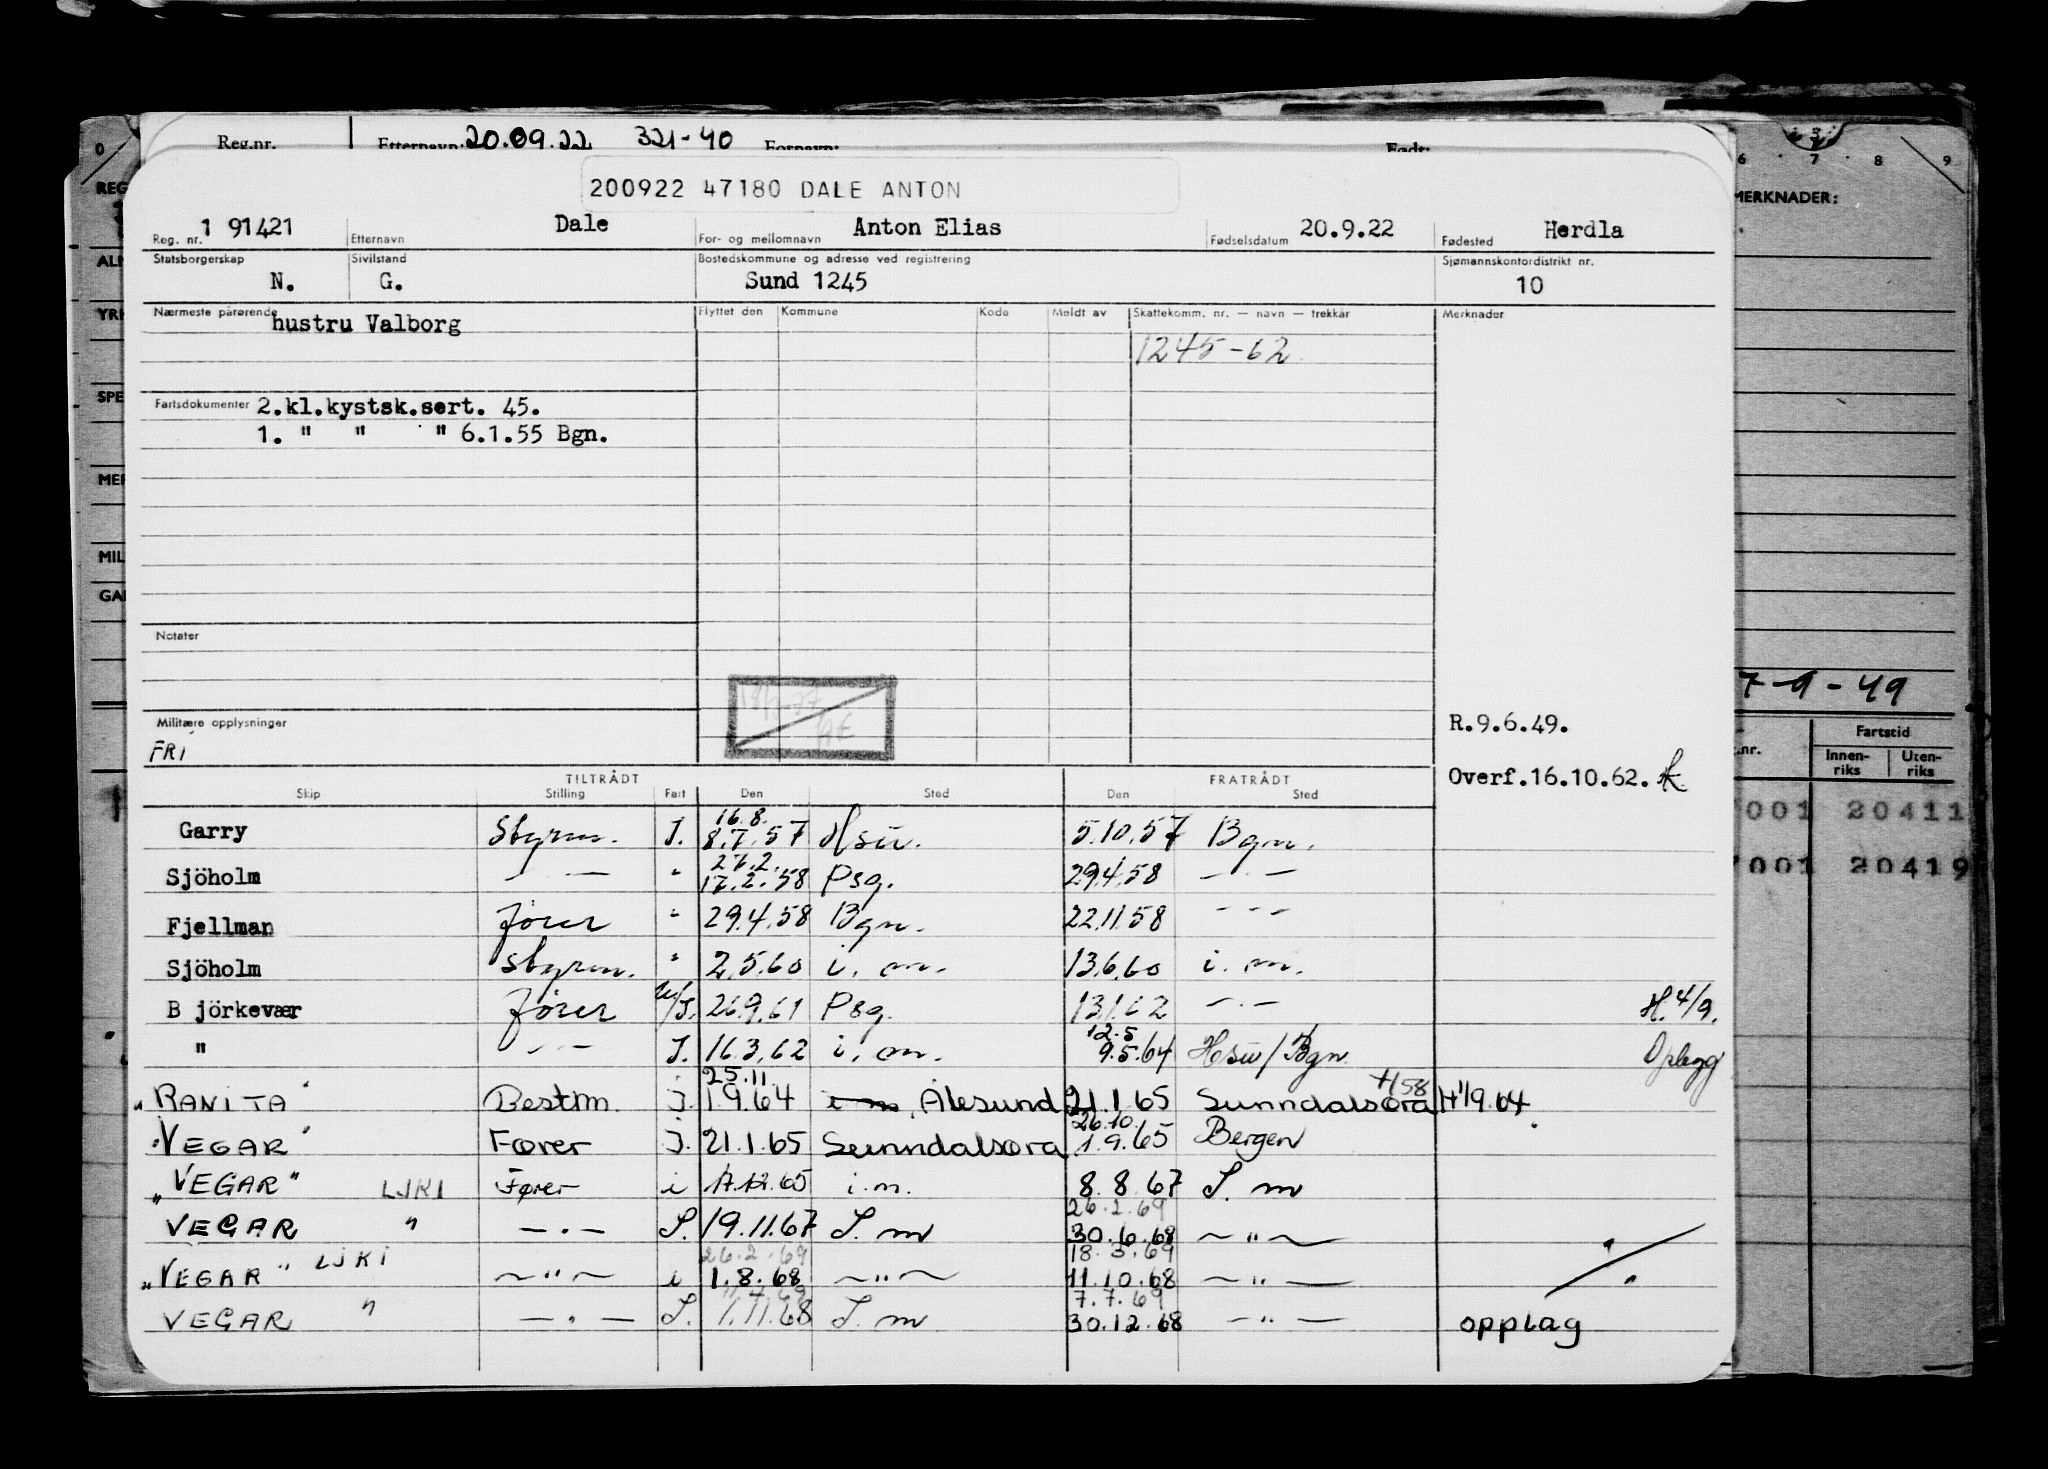 Reg.nr. Etternavn: 20.09.22 321-40 Fornavn: Født:
200922 47180 DALE ANTON
Reg. nr. 1 91421 Etternavn Dale For- og mellomnavn Anton Elias Fødselsdatum 20.9.22 Fødested Herdla
Statsborgerskap N. Sivilstand G. Bostedskommune og adresse ved registrering Sund 1245 Sjømannskontordistrikt nr. 10
Nærmeste pårørende hustru Valborg Flyttet den Kommune Kode Meldt av Skattekomm. nr. — navn — trekkår Merknader
1245-62
Fartsdokumenter 2.kl.kystsk.sert. 45.
1. " " " 6.1.55 Bgn.
Notater
Militære opplysninger R.9.6.49.
FRI
Overf.16.10.62.
TILTRÅDT FRATRÅDT
Skip Stilling Fart Den Sted Den Sted
16.8.
Garry Styrm. I. 8.7.57 Hsu. 5.10.57 Bgn.
27.2.
Sjöholm — · — " 17.2.58 Psg. 29.4.58 — · —
Fjellman fører " 29.4.58 Bgn. 22.11.58 - - -
Sjöholm Styrm. " 2.5.60 i. m. 13.6.60 i. m.
B jörkevær fører U/I. 26.9.61 Psg. 13.1.62 — · — H. 4/9.
12.5
" — · — I. 16.3.62 i. m. 9.5.64 Hsu/Bgn. Oplegg
25.11. H58
"RANITA" Bestm. I. 1.9.64 i m Ålesund 21.1.65 Sunndalsøra H1/9.64
26.10.
"VEGAR" Fører I. 21.1.65 Sunndalsøra 1.9.65 Bergen
"VEGAR" LJKI Fører i 17.12.65 i.m. 8.8.67 I. m
26.2.69
VEGAR " — · — I. 19.11.67 I. m 30.6.68 — " —
26.2.69 18.3.69
"VEGAR" LJKI — " — i 1.8.68 — " — 11.10.68 — " — "
7.7.69
VEGAR " — · — I. 1.11.68 I. m 30.12.68 — " — opplag
0
REG
ALM
YRK
SPE
MER
MIL
GAI
3
6 7 8 9
MERKNADER:
7-9-49
.nr. Fartstid
Innen-riks Uten-riks
001 20411
001 20419